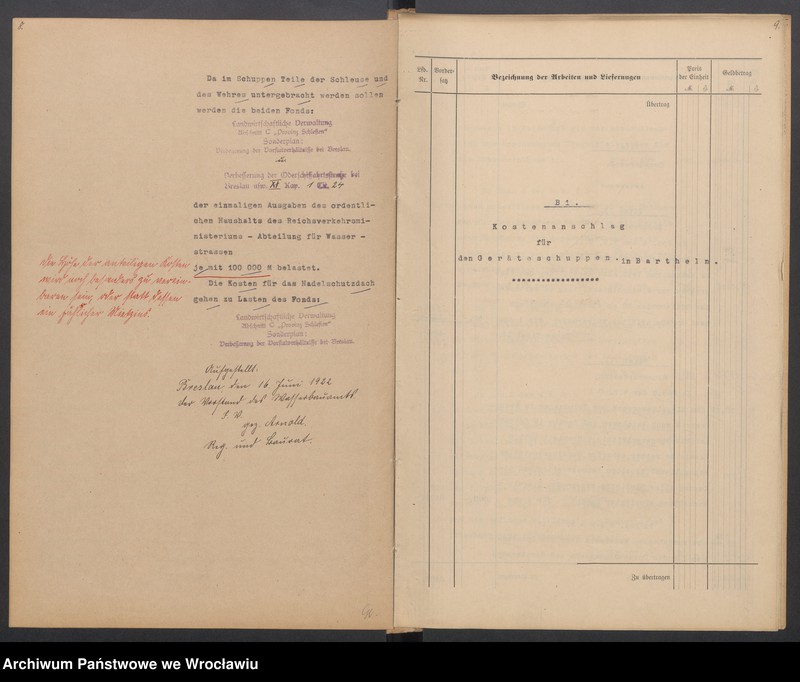 8.
Da im Schuppen Teile der Schleuse und
des Wehres untergebracht werden sollen
werden die beiden Fonds:
Landwirtschaftliche Verwaltung
Abschnitt C „Provinz Schlesien"
Sonderplan:
Verbesserung der Vorflutverhältnisse bei Breslau.
Verbesserung der Oderschiffahrtsstraße bei
Breslau usw. XI Kap. 1 Tit. 24
der einmaligen Ausgaben des ordentli-
chen Haushalts des Reichsverkehrsmi-
nisteriums - Abteilung für Wasser -
strassen
je mit 100 000 M belastet.
Die Kosten für das Nadelschutzdach
gehen zu Lasten des Fonds:
Landwirtschaftliche Verwaltung
Abschnitt C „Provinz Schlesien"
Sonderplan:
Verbesserung der Vorflutverhältnisse bei Breslau.
Die Höhe der anteiligen Kosten
wird noch besonders zu verein-
baren sein, oder statt dessen
ein jährlicher Mietzins.
Aufgestellt.
Breslau den 16 Juni 1922
der Vorstand des Wasserbauamts
I. V.
gez. Arnold.
Reg. und Baurat.
9.
Lfd.
Nr.
Vorder-
satz
Bezeichnung der Arbeiten und Lieferungen
Preis
der Einheit
Geldbetrag
Übertrag
B 1.
Kostenanschlag
für
den Geräteschuppen in Bartheln.
Zu übertragen
Archiwum Państwowe we Wrocławiu